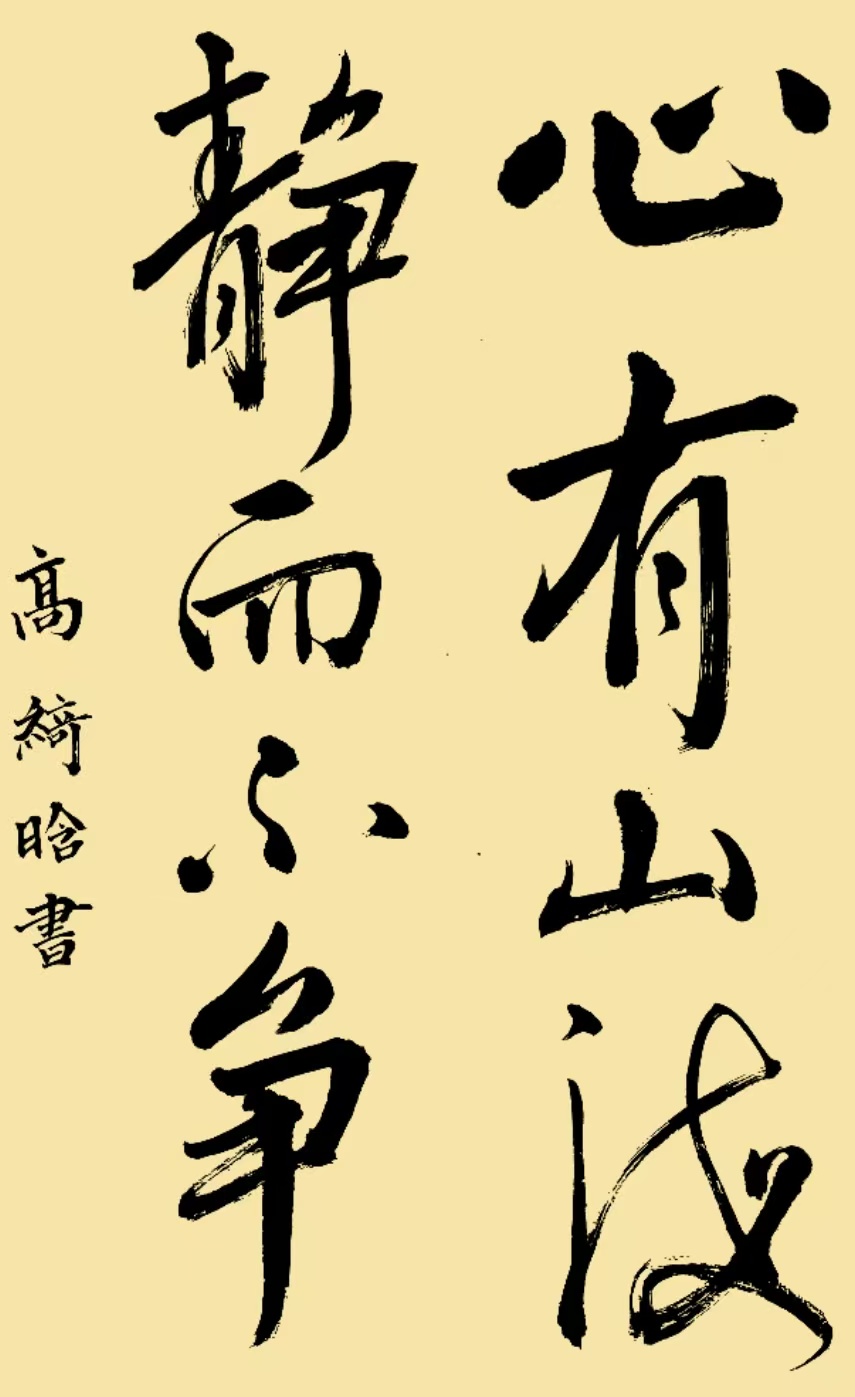 心有山海
静而不争
高綺晗書